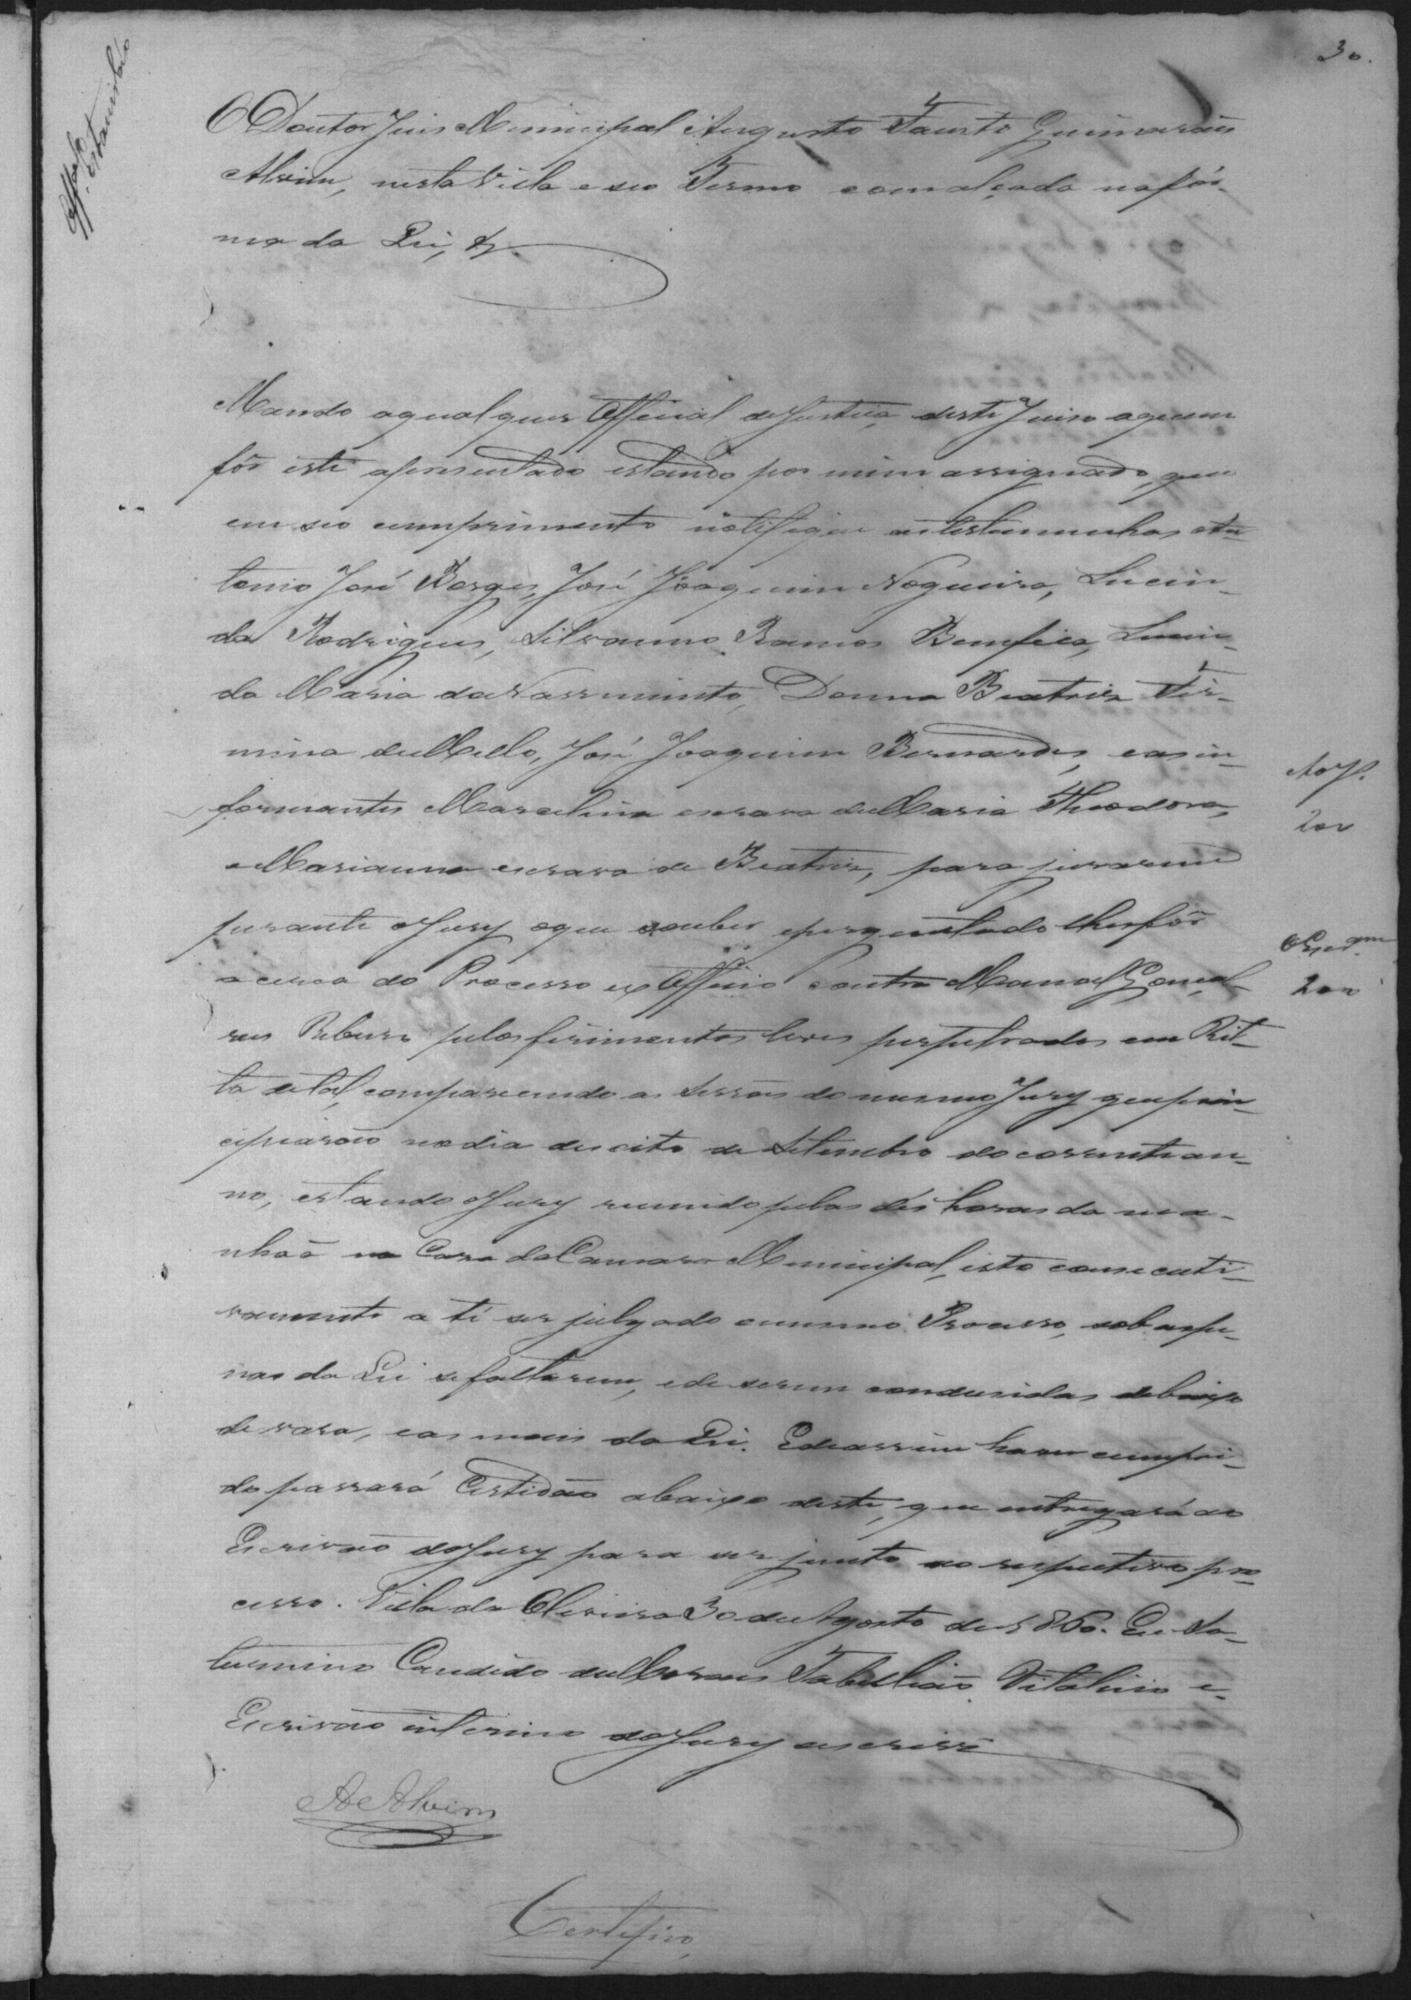 30.
O Doutor Juis Municipal Augusto Fausto Guimarães
Alvim, nesta Villa e seo Termo com alçada na fór-
ma da Lei, &.
Mando a qualquer Official de Justiça deste Juiso a quem
fôr este apresentado estando por mim assignado, que
em seo cumprimento notifique as testemunhas An-
tonio José Borges, José Joaquim Nogueira, Lucin-
da Rodrigues, Silvanno Ramos Bemfica, Lucin-
da Maria do Nassimento, Donna Beatris Fir-
mina de Mello, José Joaquim Bernardes, e as in-
formantes Marcelina escrava de Maria Theodora,
e Marianna escrava de Beatris, para jurarem
perante o Jury o que souber e perguntado lhes fôr
a cerca do Processo ex Officio contra Manoel Gonçal-
ves pelos ferimentos leves perpetrados em Rit-
ta de tal, comparecendo as sessões do mesmo Jury que prin-
cipiarão no dia desoito de Setembro do corrente an-
no, estando o Jury reunido pelas dés horas da ma-
nhãa na Casa da Camara Municipal, isto consecuti-
vamente a té ser julgado o mesmo Processo, sob as pe-
nas da Lei se faltarem, e de serem condusidas debaixo
de vara, e as mais da Lei. E de assim haver cumpri-
do passará Certidão abaixo deste, que entregará ao
Escrivão do Jury para ser junto ao respectivo pro-
cesso. Villa da Oliveira 30 de Agosto de 1860. Eu Sa-
turnino Candido de Moraes Tabellião Vitalicio e
Escrivão interino do Jury escrevi
A. Alvim
Certifico,
200
200